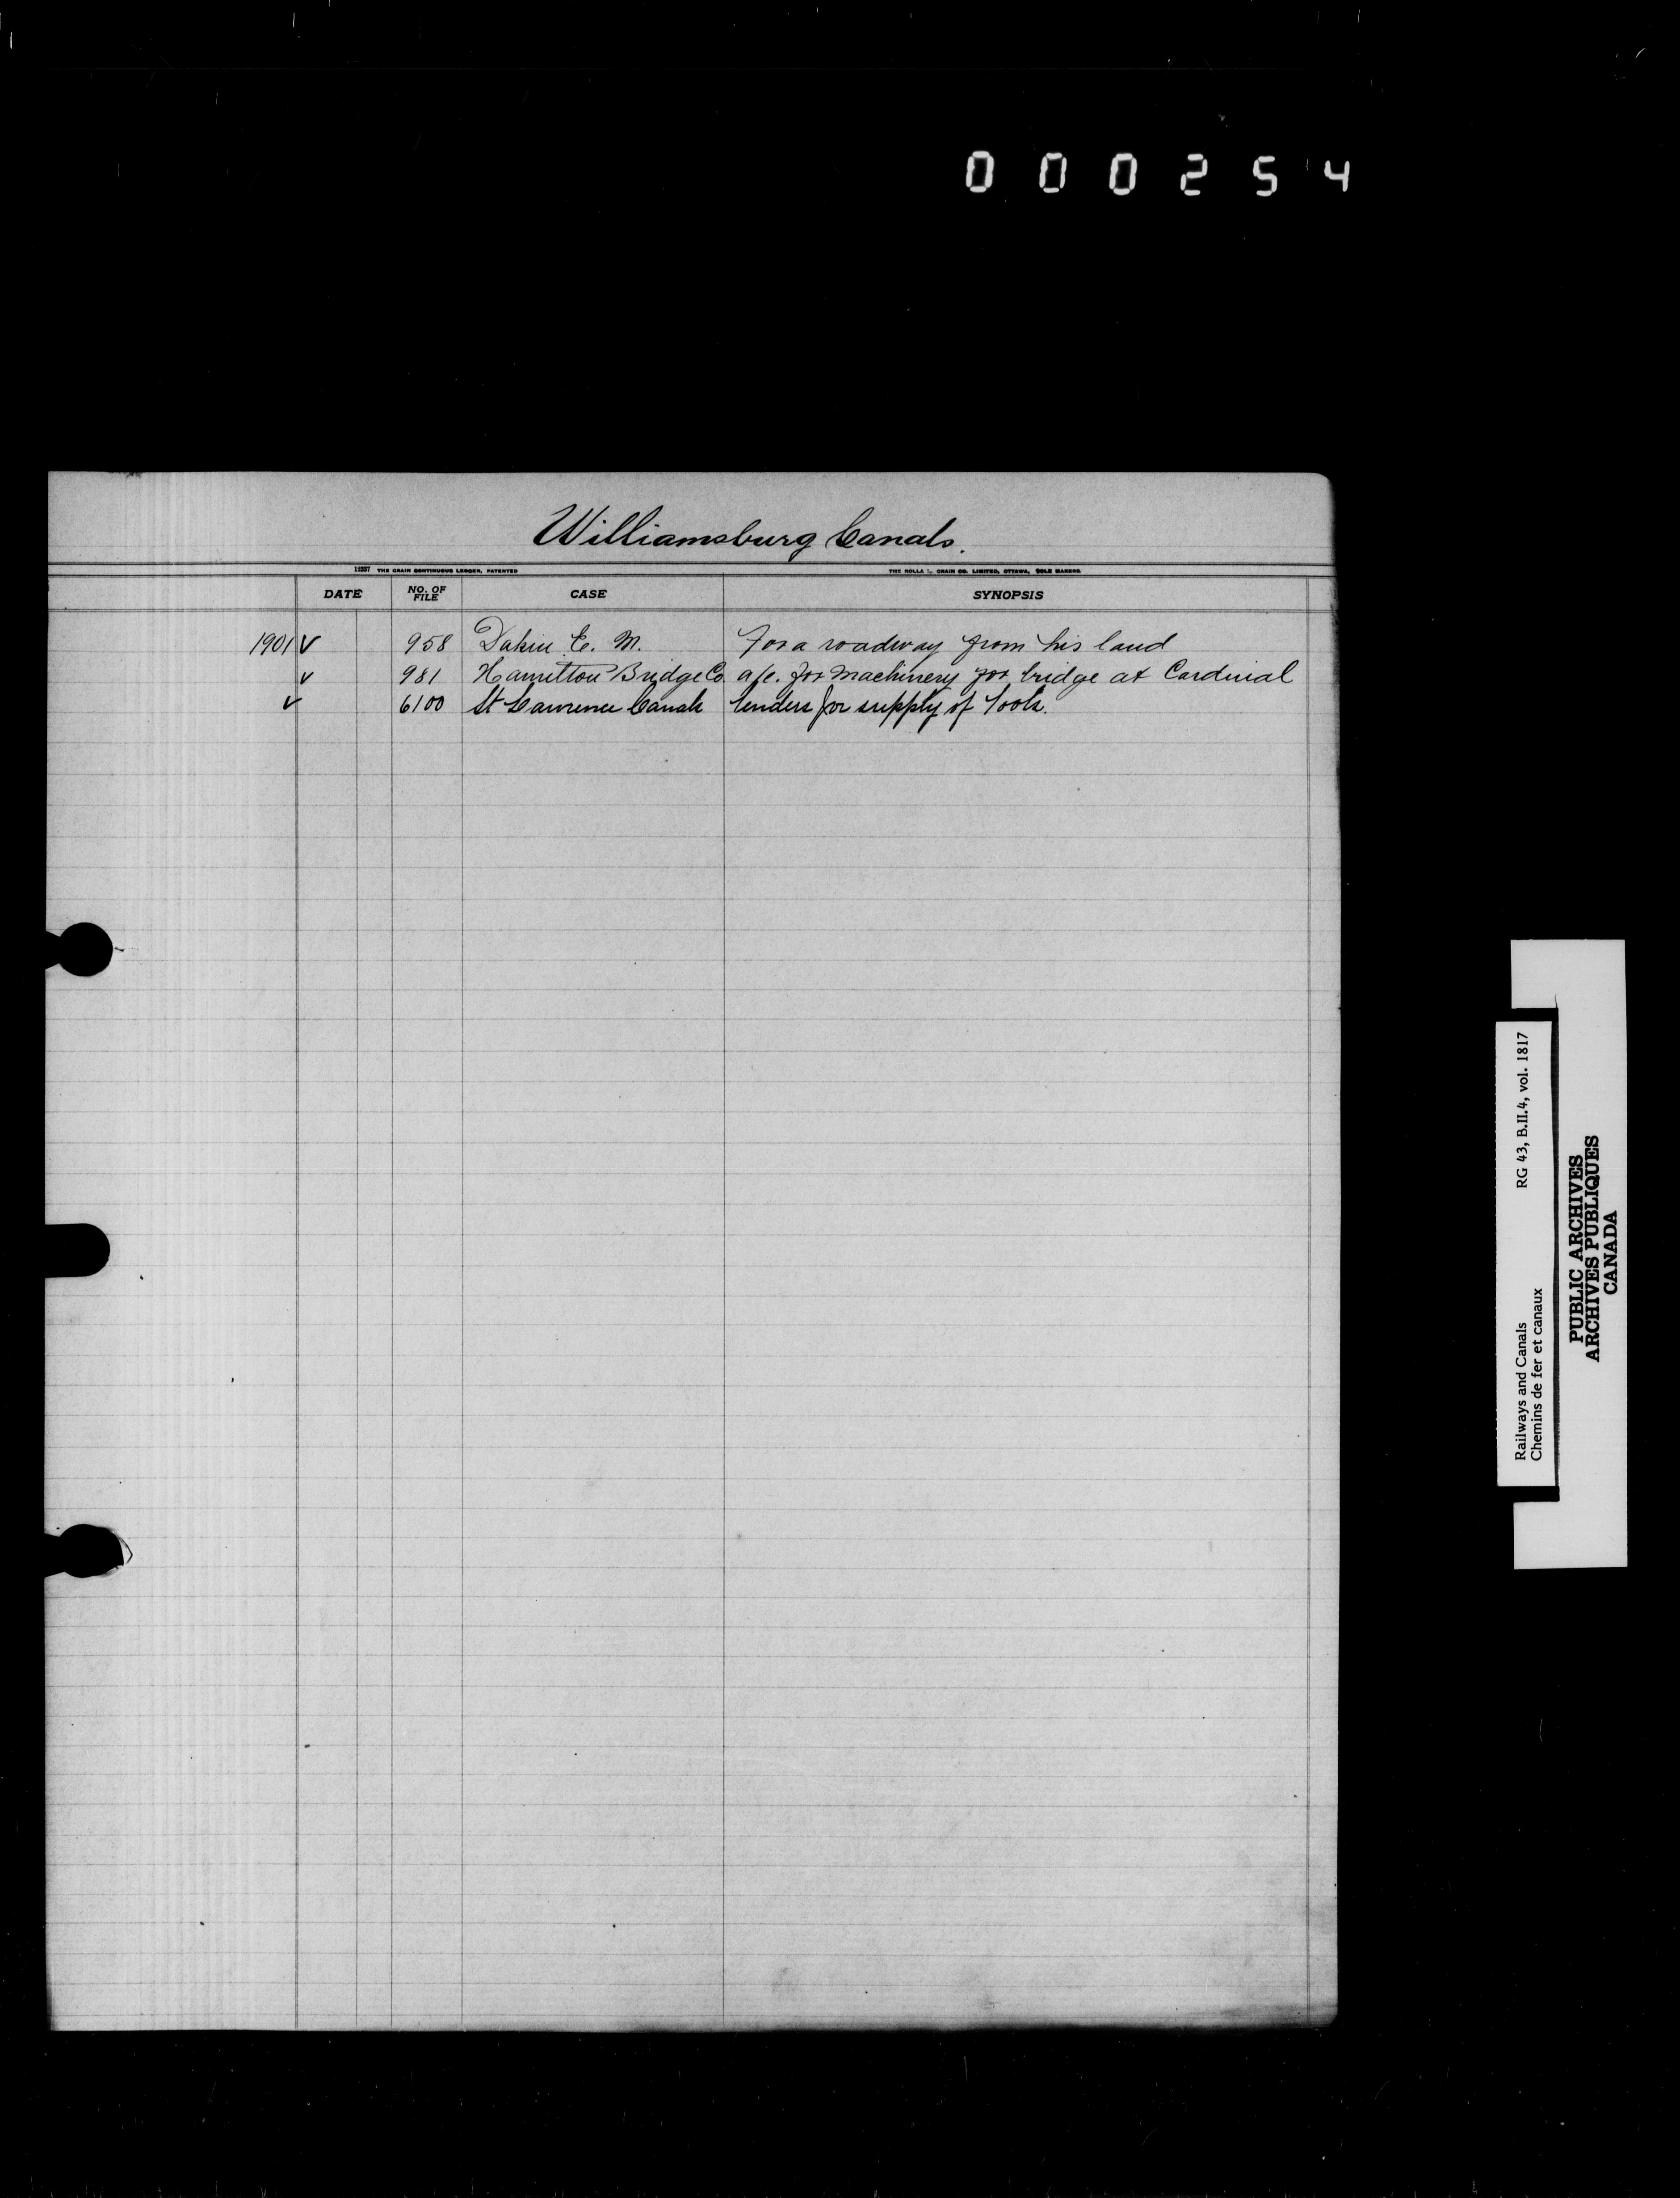 000254
Williamsburg Canals.
11237 THE CRAIN CONTINUOUS LEDGER, PATENTED THE ROLLA L. CRAIN CO. LIMITED, OTTAWA, SOLE MAKERS.
DATE NO. OF FILE CASE SYNOPSIS
1901 ✓ 958 Dakin E. M. For a roadway from his land
✓ 981 Hamilton Bridge Co. a/c. for machinery for bridge at Cardinal
✓ 6100 St Lawrence Canals tenders for supply of Tools.
Railways and Canals RG 43, B.II.4, vol. 1817
Chemins de fer et canaux
PUBLIC ARCHIVES
ARCHIVES PUBLIQUES
CANADA